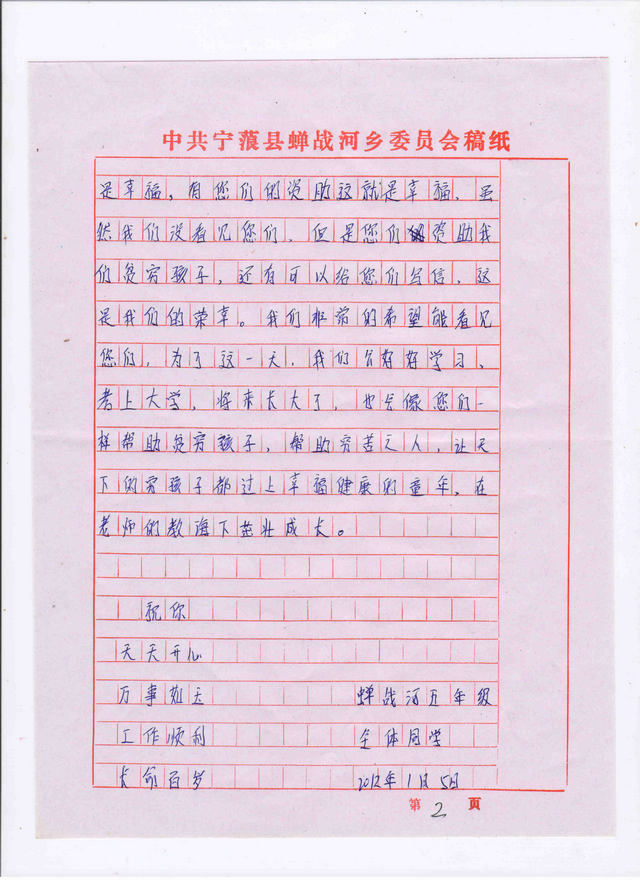 中共宁蒗县蝉战河乡委员会稿纸
是幸福，有您们的资助这就是幸福、虽
然我们没看见您们、但是您们资助我
们贫穷孩子，还有可以给您们写信、这
是我们的荣幸。我们非常的希望能看见
您们，为了这一天，我们会好好学习、
考上大学，将来长大了，也会像您们一
样帮助贫穷孩子，帮助穷苦之人，让天
下的穷孩子都过上幸福健康的童年，在
老师的教海下茁壮成长。
祝你
天天开心
万事如意 蝉战河五年级
工作顺利 全体同学
长命百岁 2012年1月5日
第2页